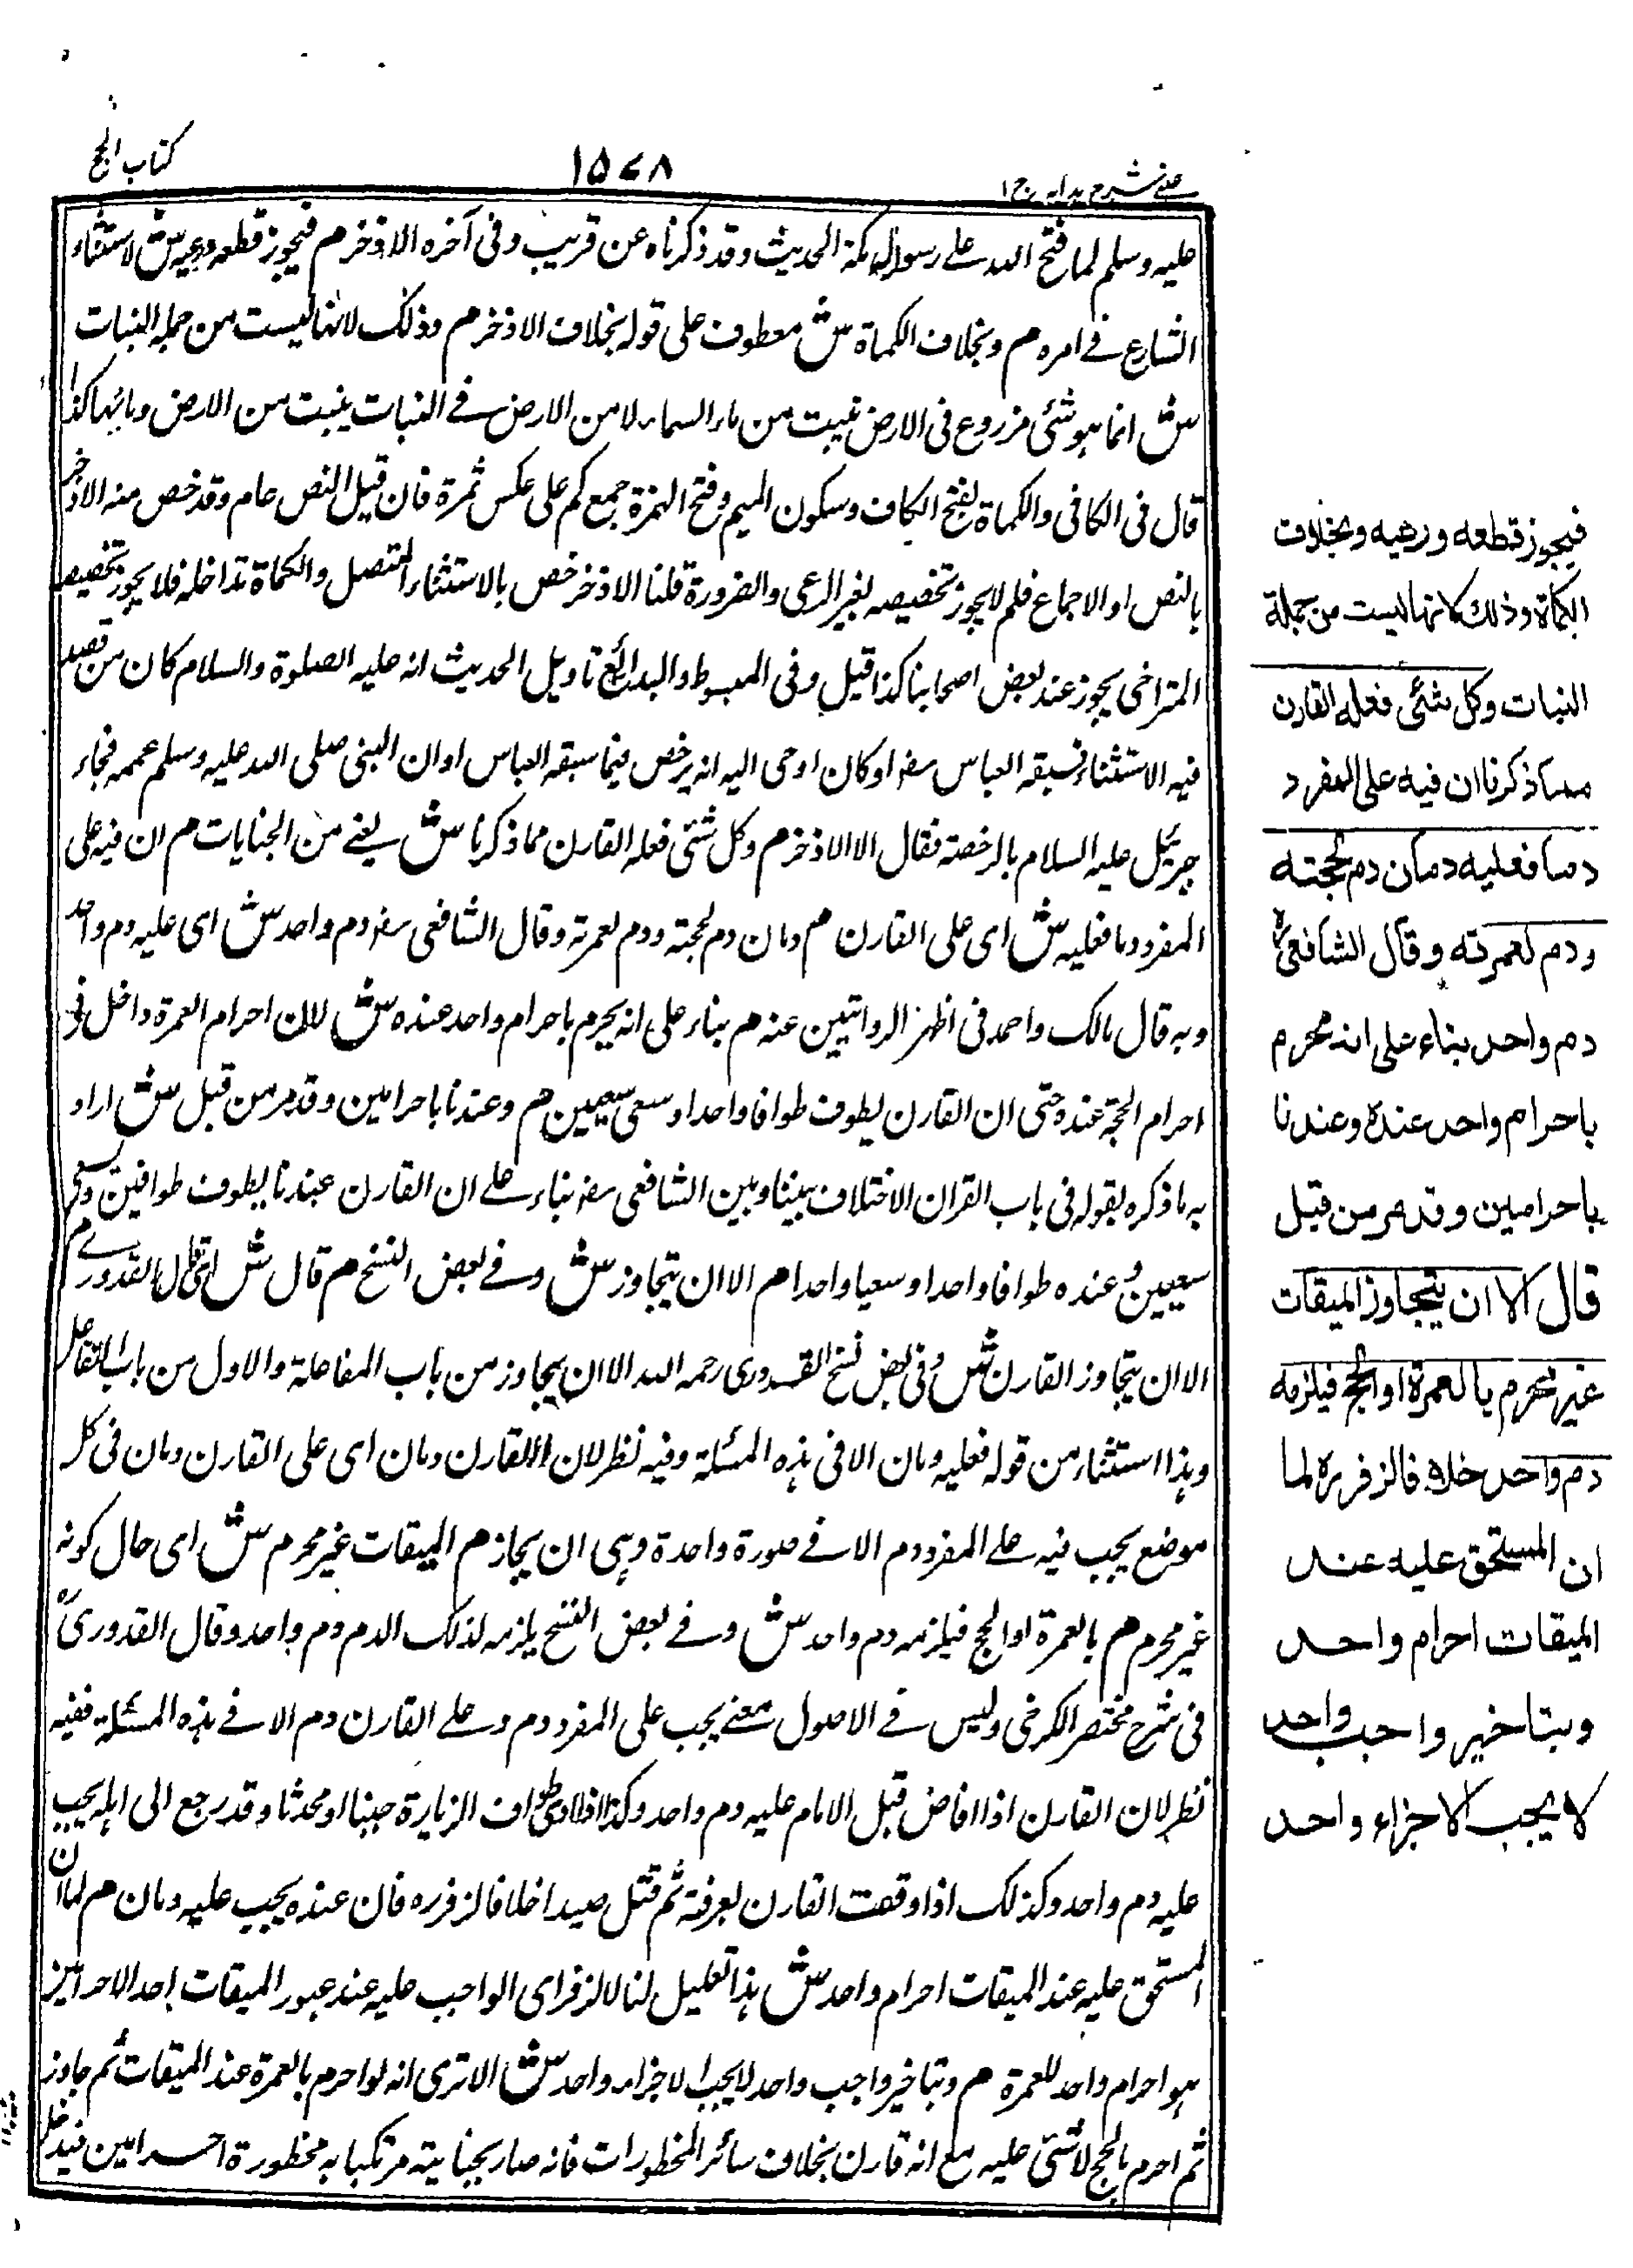 عینی شرح ہدایہ ج ۱
۱۵۷۸
کتاب الحج
علیہ وسلم لما فتح اللہ علی رسولہ مکۃ الحدیث وقد ذکرناہ عن قریب وفی آخرہ الا الاذخر م فیجوز قطعہ ورعیہ ش لاستثناء
الشارع فے امرہ م وبخلاف الکماۃ ش معطوف علی قولہ بخلاف الاذخر م وذلک لانہا لیست من جملۃ النبات
ش انما ہو شئی مزروع فی الارض نبیت من ماء السماء لا من الارض فے النبات ینبت من الارض وبائہا کذا
قال فی الکافی والکماۃ بفتح الکاف وسکون المیم وفتح الہمزۃ جمع کم علی عکس ثمرۃ فان قیل النص عام وقد خص منہ الاذخر
بالنص او الاجماع فلم لا یجوز تخصیصہ بغیر الرعی والضرورۃ قلنا الاذخر خص بالاستثناء المتصل والکماۃ تداخلہ فلا یجوز تخصیصہ
المتراخی یجوز عند بعض اصحابنا کذا قیل وفی المبسوط والبدائع تاویل الحدیث انہ علیہ الصلوۃ والسلام کان من قصد
فیہ الاستثناء فسبقہ العباس رضہ او کان اوحی الیہ انہ یرخص فیما سبقہ العباس او ان النبی صلی اللہ علیہ وسلم عممہ فجاء
جبرئیل علیہ السلام بالرخصۃ فقال الا الاذخر م وکل شئی فعلہ القارن مما ذکرنا ش یعنے من الجنایات م ان فیہ علی
المفرد دما فعلیہ ش ای علی القارن م دمان دم لحجتہ ودم لعمرتہ وقال الشافعی رضہ دم واحد ش ای علیہ دم واحد
وبہ قال مالک واحمد فی اظہر الروایتین عنہ م بناء علی انہ یحرم باحرام واحد عندہ ش لان احرام العمرۃ داخل فی
احرام الحجۃ عندہ حتی ان القارن یطوف طوافا واحدا وسعی سعیین م وعندنا باحرامین وقد مر من قبل ش اراد
بہ ما ذکرہ بقولہ فی باب القران الاختلاف بیننا وبین الشافعی رضہ بناء علی ان القارن عندنا یطوف طوافین ویسعی
سعیین وعندہ طوافا واحدا وسعیا واحدا م الا ان یتجاوز ش وفے بعض النسخ م قال ش ای قال القدوری م
الا ان یتجاوز القارن ش وفی بعض نسخ القدوری رحمہ اللہ الا ان یجاوز من باب المفاعلۃ والاول من باب التفاعل
وہذا استثناء من قولہ فعلیہ دمان الا فی ہذہ المسئلۃ وفیہ نظر لان للقارن دمان ای علی القارن دمان فی کل
موضع یجب فیہ علی المفرد دم الا فے صورۃ واحدۃ وہی ان یجاز م المیقات غیر محرم ش ای حال کونہ
غیر محرم م بالعمرۃ او الحج فیلزمہ دم واحد ش وفے بعض النسخ یلزمہ لذلک الدم دم واحد وقال القدوری
فی شرح مختصر الکرخی ولیس فے الاصول معنے یجب علی المفرد دم وعلی القارن دم الا فے ہذہ المسئلۃ ففیہ
نظر لان القارن اذا افاض قبل الامام علیہ دم واحد وکذا اذا ادی طواف الزیارۃ جنبا او محدثا وقد رجع الی اہلہ یجب
علیہ دم واحد وکذلک اذا وقف القارن بعرفۃ ثم قتل صیدا خلافا لزفر رہ فان عندہ یجب علیہ دمان م لما ان
المستحق علیہ عند المیقات احرام واحد ش ہذا تعلیل لنا لا لزفر ای الواجب علیہ عند عبور المیقات احد الاحرامین
ہو احرام واحد للعمرۃ م وبتاخیر واجب واحد لا یجب الا جزاء واحد ش الا تری انہ لو احرم بالعمرۃ عند المیقات ثم جاوز
ثم احرم بالحج لا شئی علیہ مع انہ قارن بخلاف سائر المحظورات فانہ صار بجنایتہ مرتکبا بہ محظورۃ احرامین فیدخل
فیجوز قطعه ورعیه وبخلاف
الکماة وذلك لانها ليست من جملة
النبات وکل شئی فعله القارن
مما ذکرنا ان فیه علی المفرد
دما فعلیه دمان دم لحجته
ودم لعمرته وقال الشافعی رہ
دم واحد بناء علی انه محرم
باحرام واحد عنده وعندنا
باحرامین وقد مر من قبل
قال الا ان یتجاوز المیقات
غیر محرم بالعمرة او الحج فیلزمه
دم واحد خلافا لزفر رہ لما
ان المستحق علیه عند
المیقات احرام واحد
وبتاخیر واجب واحد
لا یجب الا جزاء واحد